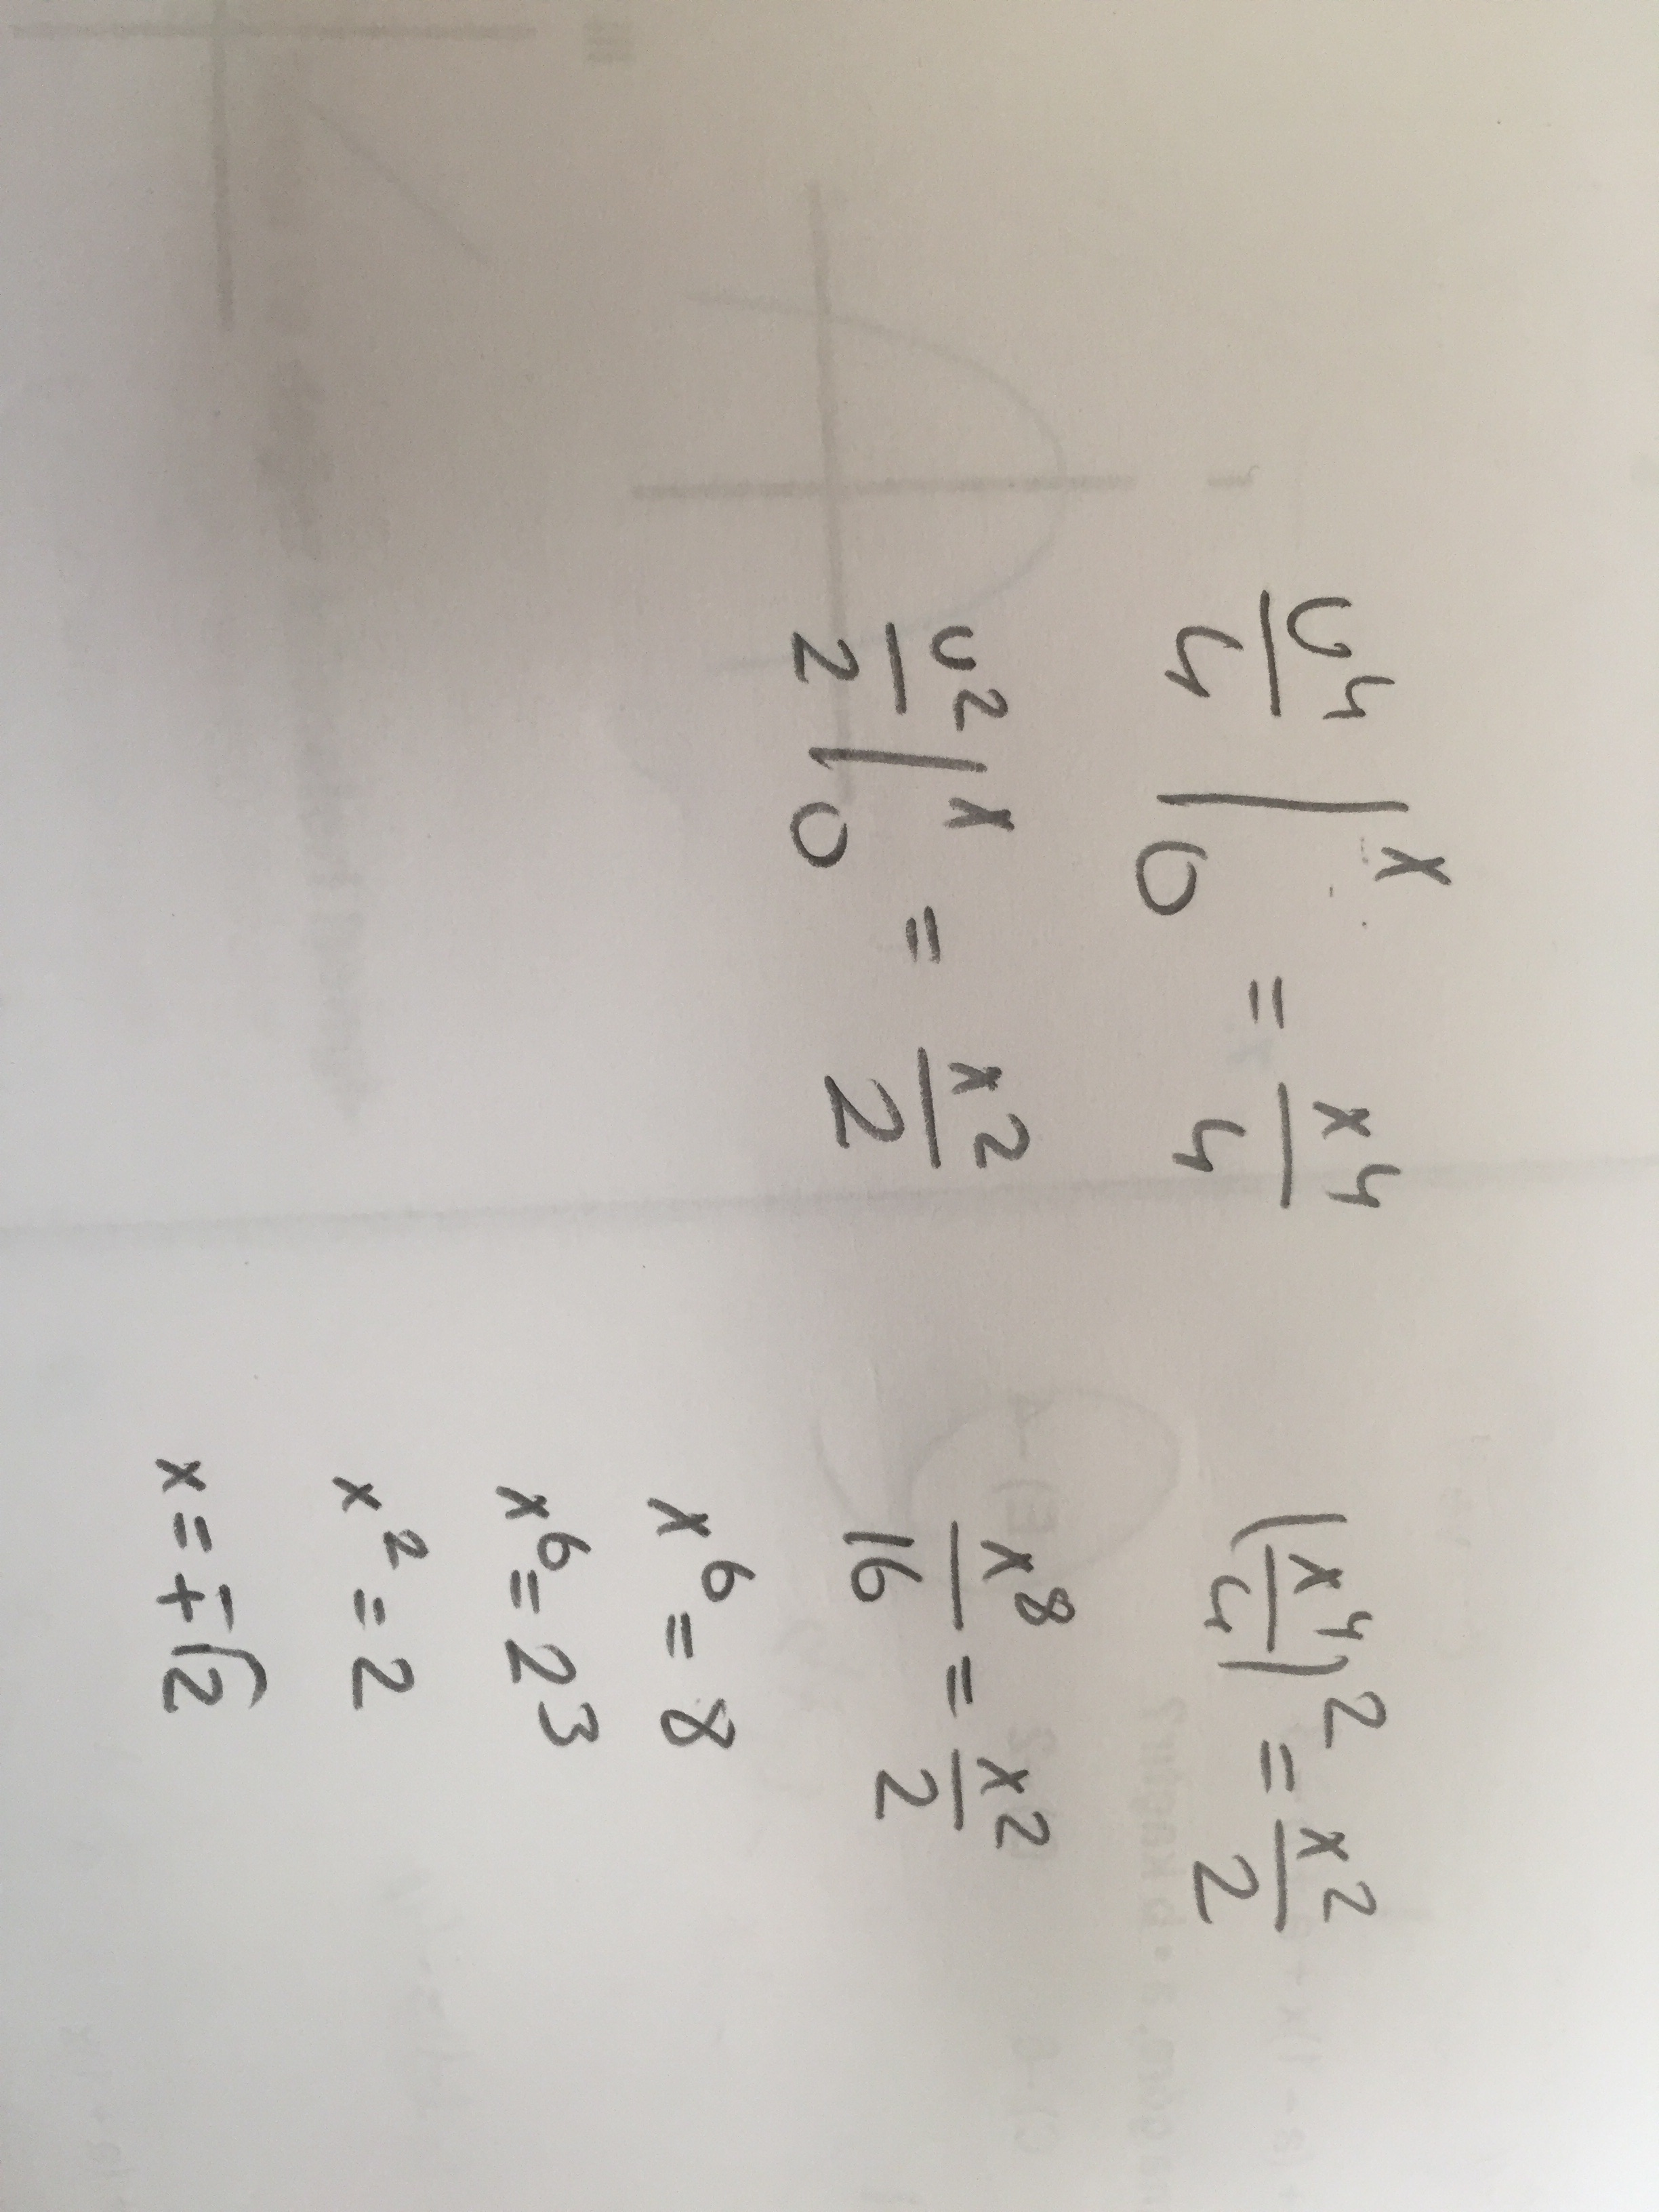 u⁴/4 |₀ˣ = x⁴/4
u²/2 |₀ˣ = x²/2
(x⁴/4)² = x²/2
x⁸/16 = x²/2
x⁶ = 8
x⁶ = 2³
x² = 2
x = ∓√2